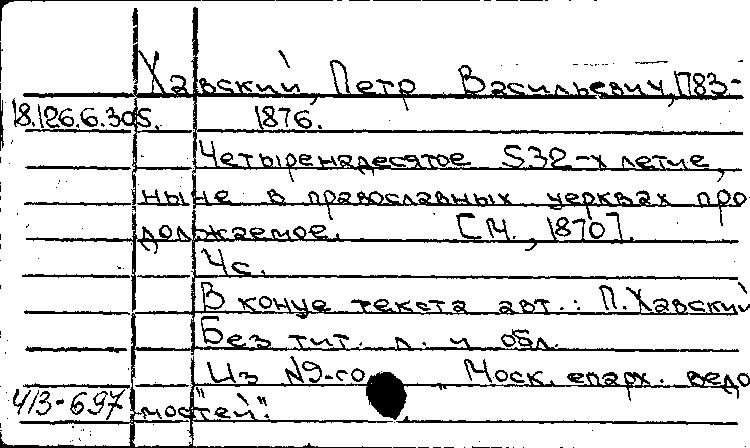 Хавский, Петр Васильевич, 1783-
18.126.6.305. 1876.
Четыренадесятое 532-х летие,
ныне в православных церквах про
должаемое. [М., 1870].
4 с.
В конце текста авт.: П. Хавский
Без тит. л. и обл.
Из №9-го "Моск. епарх. ведо
413-697 мостей".